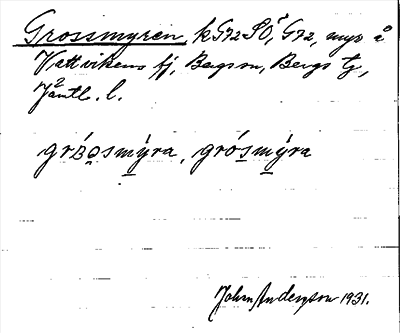 Grossmyren, k G72 SÖ, G72, myr å
Vattvikens fj, Bagsm, Bergs tg,
Jämtl. l.
gróosmýra, grósmýra
John Anderzon 1931.